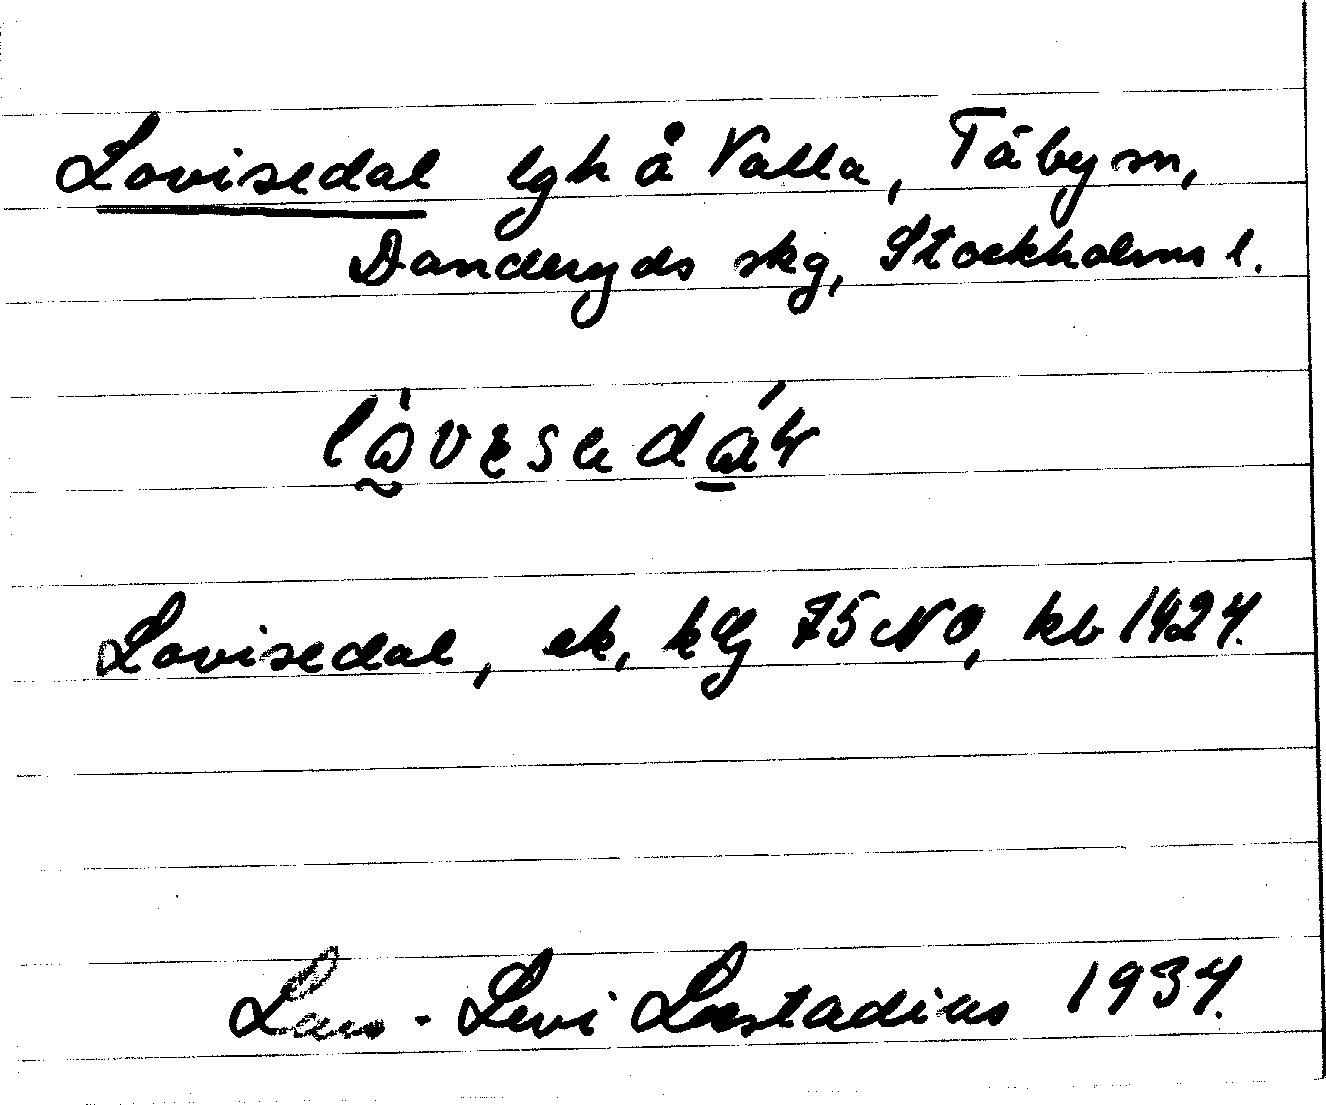 Lovisedal lgh å Valla, Täby sn,
Danderyds skg, Stockholms l.
Lovisedal, ek, kbl 75 NO, kb 1924.
Lars-Levi Læstadius 1934.